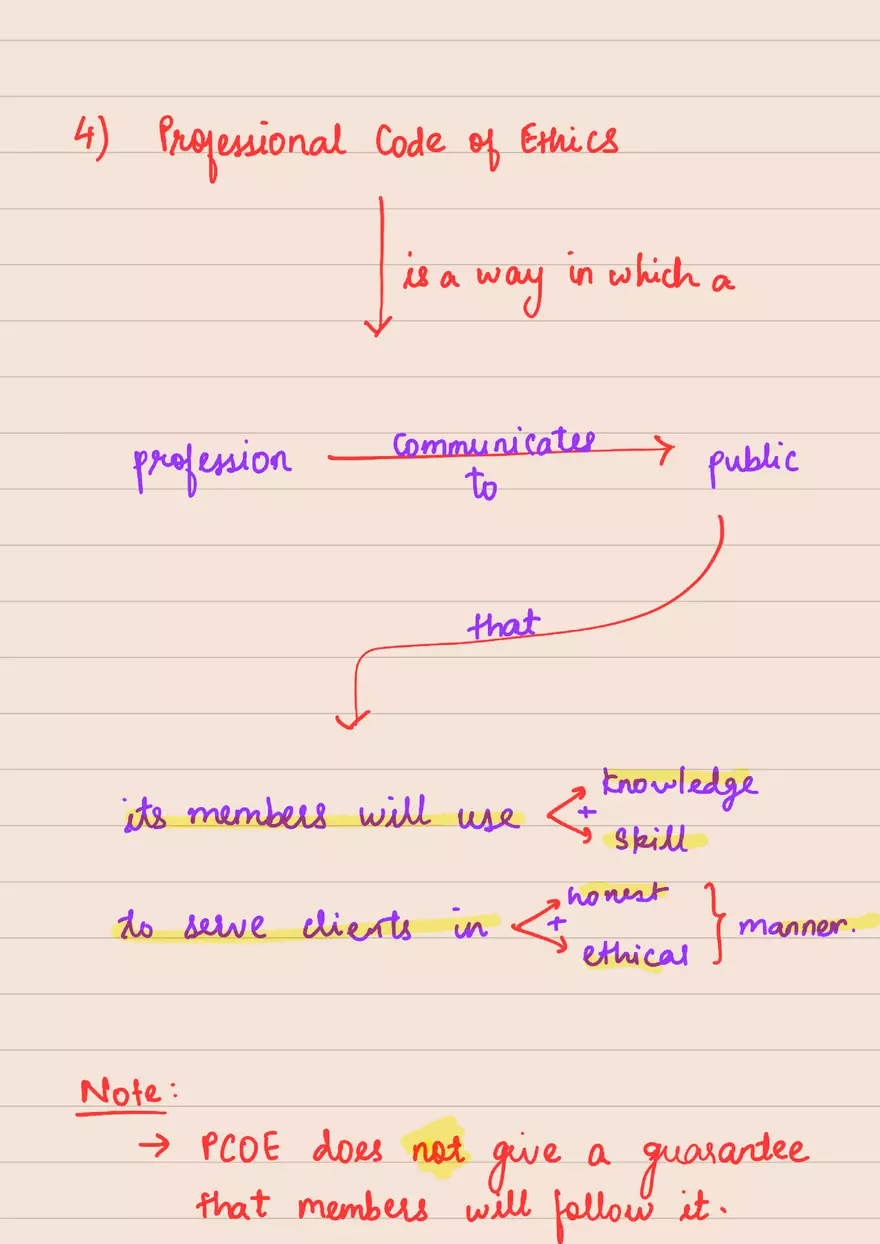 4) Professional Code of Ethics
is a way in which a
profession communicates to public
that
its members will use knowledge + skill
to serve clients in honest + ethical } manner.
Note:
→ PCOE does not give a guarantee
that members will follow it.